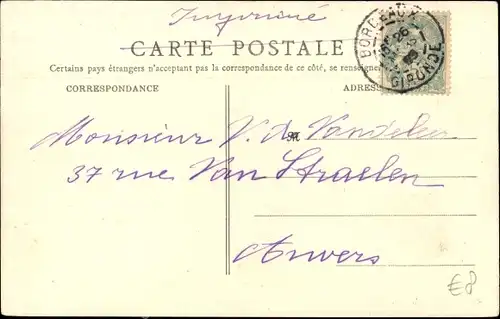 Imprimé
CARTE POSTALE
Certains pays étrangers n'acceptant pas la correspondance de ce côté, se renseigner
CORRESPONDANCE
ADRES
BORDEAUX
GIRONDE
Monsieur V. de
37 rue Van Straelen
Anvers
€8